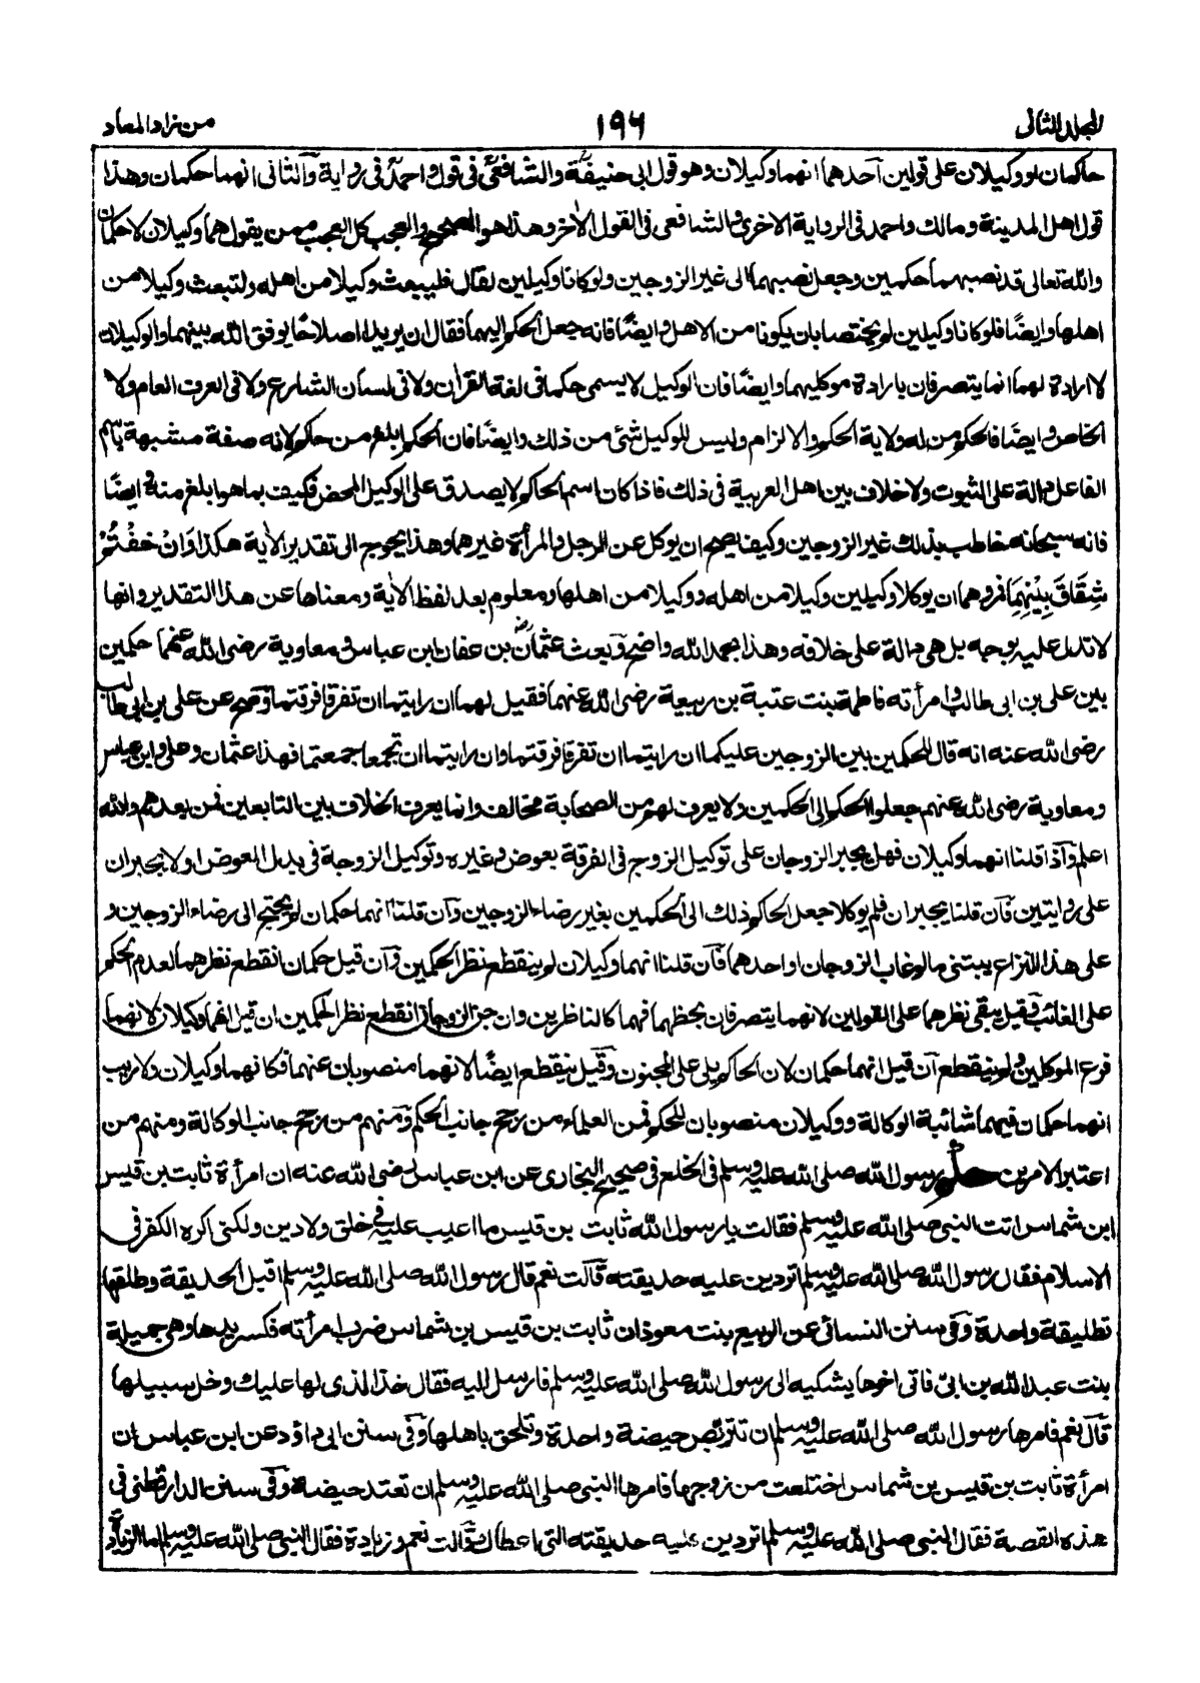 المجلد الثانى
١٩٦
من زاد المعاد
حاكمان او وكيلان على قولين احدهما انهما وكيلان وهو قول ابى حنيفة والشافعىؒ فى قول واحمدؒ فى رواية والثانى انهما حكمان وهذا
قول اهل المدينة ومالك واحمد فى الرواية الاخرى والشافعى فى القول الاٰخر وهذا هو الصحيح والعجب كل العجب ممن يقول هما وكيلان لا حكمان
والله تعالى قد نصبهما حكمين وجعل نصبهما الى غير الزوجين ولو كانا وكيلين لقال فليبعث وكيلا من اهله ولتبعث وكيلا من
اهلها وايضًا فلو كانا وكيلين لم يختصا بان يكونا من الاهل وايضًا فانه جعل الحكم اليهما فقال ان يريدا اصلاحًا يوفق الله بينهما والوكيلان
لا ارادة لهما انما يتصرفان بارادة موكليهما وايضًا فان الوكيل لا يسمى حكما فى لغة القراٰن ولا فى لسان الشارع ولا فى العرف العام ولا
الخاص وايضًا فالحكم من له ولاية الحكم والالزام وليس للوكيل شئ من ذلك وايضًا فان الحكم ابلغ من حاكم لانه صفة مشبهة باسم
الفاعل دالة على الثبوت ولا خلاف بين اهل العربية فى ذلك فاذا كان اسم الحاكم لا يصدق على الوكيل المحض فكيف بما هو ابلغ منه وايضًا
فانه سبحانه خاطب بذلك غير الزوجين وكيف يصح ان يوكل عن الرجل والمرأة غيرهما وهذا يحوج الى تقدير الاٰية هكذا وَاِنْ خِفْتُمْ
شِقَاقَ بَيْنِهِمَا فمروهما ان يوكلا وكيلين وكيلا من اهله ووكيلا من اهلها ومعلوم بعد لفظ الاٰية ومعناها عن هذا التقدير وانها
لا تدل عليه بوجه بل هى دالة على خلافه وهذا بحمد الله واضح وبعث عثمانؓ بن عفان ابن عباس و معاوية رضى الله عنهما حكمين
بين على بن ابى طالب وامرأته فاطمة بنت عتبة بن ربيعة رضى الله عنهما فقيل لهما ان رايتما ان تفرقا فرقتما وصح عن على بن ابى طالب
رضى الله عنه انه قال للحكمين بين الزوجين عليكما ان رايتما ان تفرقا فرقتما وان رايتما ان تجمعا جمعتما فهذا عثمان وعلى وابن عباس
ومعاوية رضى الله عنهم جعلوا الحكم الى الحكمين ولا يعرف لهم من الصحابة مخالف وانما يعرف الخلاف بين التابعين فمن بعدهم والله
اعلم واذا قلنا انهما وكيلان فهل يجبر الزوجان على توكيل الزوج فى الفرقة بعوض وغيره وتوكيل الزوجة فى بدل العوض او لا يجبران
على روايتين فان قلنا يجبران فلم يوكلا جعل الحاكم ذلك الى الحكمين بغير رضاء الزوجين وان قلنا انهما حكمان لم يحتج الى رضاء الزوجين و
على هذا النزاع يبتنى ما لو غاب الزوجان او احدهما فان قلنا انهما وكيلان لم ينقطع نظر الحكمين وان قيل حكمان انقطع نظرهما لعدم الحكم
على الغائب وقيل يبقى نظرهما على القولين لانهما يتصرفان بحظهما فهما كالناظرين وان جن الزوجان انقطع نظر الحكمين ان قيل انهما وكيلان لانهما
فرع الموكلين ولم ينقطع ان قيل انهما حكمان لان الحاكم يلى على المجنون وقيل ينقطع ايضًا لانهما منصوبان عنهما فكانهما وكيلان ولا ريب
انهما حكمان فيهما شائبة الوكالة ووكيلان منصوبان للحكم فمن العلماء من رجح جانب الحكم ومنهم من رجح جانب الوكالة ومنهم من
اعتبر الامرين حكم رسول الله صلى الله عليه وسلم فى الخلع فى صحيح البخارى عن ابن عباس رضى الله عنه ان امرأة ثابت بن قيس
ابن شماس اتت النبى صلى الله عليه وسلم فقالت يا رسول الله ثابت بن قيس ما اعيب عليه فى خلق ولا دين ولكنى اكره الكفر فى
الاسلام فقال رسول الله صلى الله عليه وسلم اتردين عليه حديقته قالت نعم قال رسول الله صلى الله عليه وسلم اقبل الحديقة وطلقها
تطليقة واحدة وفى سنن النسائى عن الربيع بنت معوذ ان ثابت بن قيس بن شماس ضرب امرأته فكسر يدها وهى جميلة
بنت عبد الله بن ابى فاتى اخوها يشكيه الى رسول الله صلى الله عليه وسلم فارسل اليه فقال خذ الذى لها عليك وخل سبيلها
قال نعم فامرها رسول الله صلى الله عليه وسلم ان تتربص حيضة واحدة وتلحق باهلها وفى سنن ابى داؤد عن ابن عباس ان
امرأة ثابت بن قيس بن شماس اختلعت من زوجها فامرها النبى صلى الله عليه وسلم ان تعتد حيضة وفى سنن الدارقطنى فى
هذه القصة فقال النبى صلى الله عليه وسلم اتردين عليه حديقته التى اعطاك قالت نعم وزيادة فقال النبى صلى الله عليه وسلم اما الزيادة